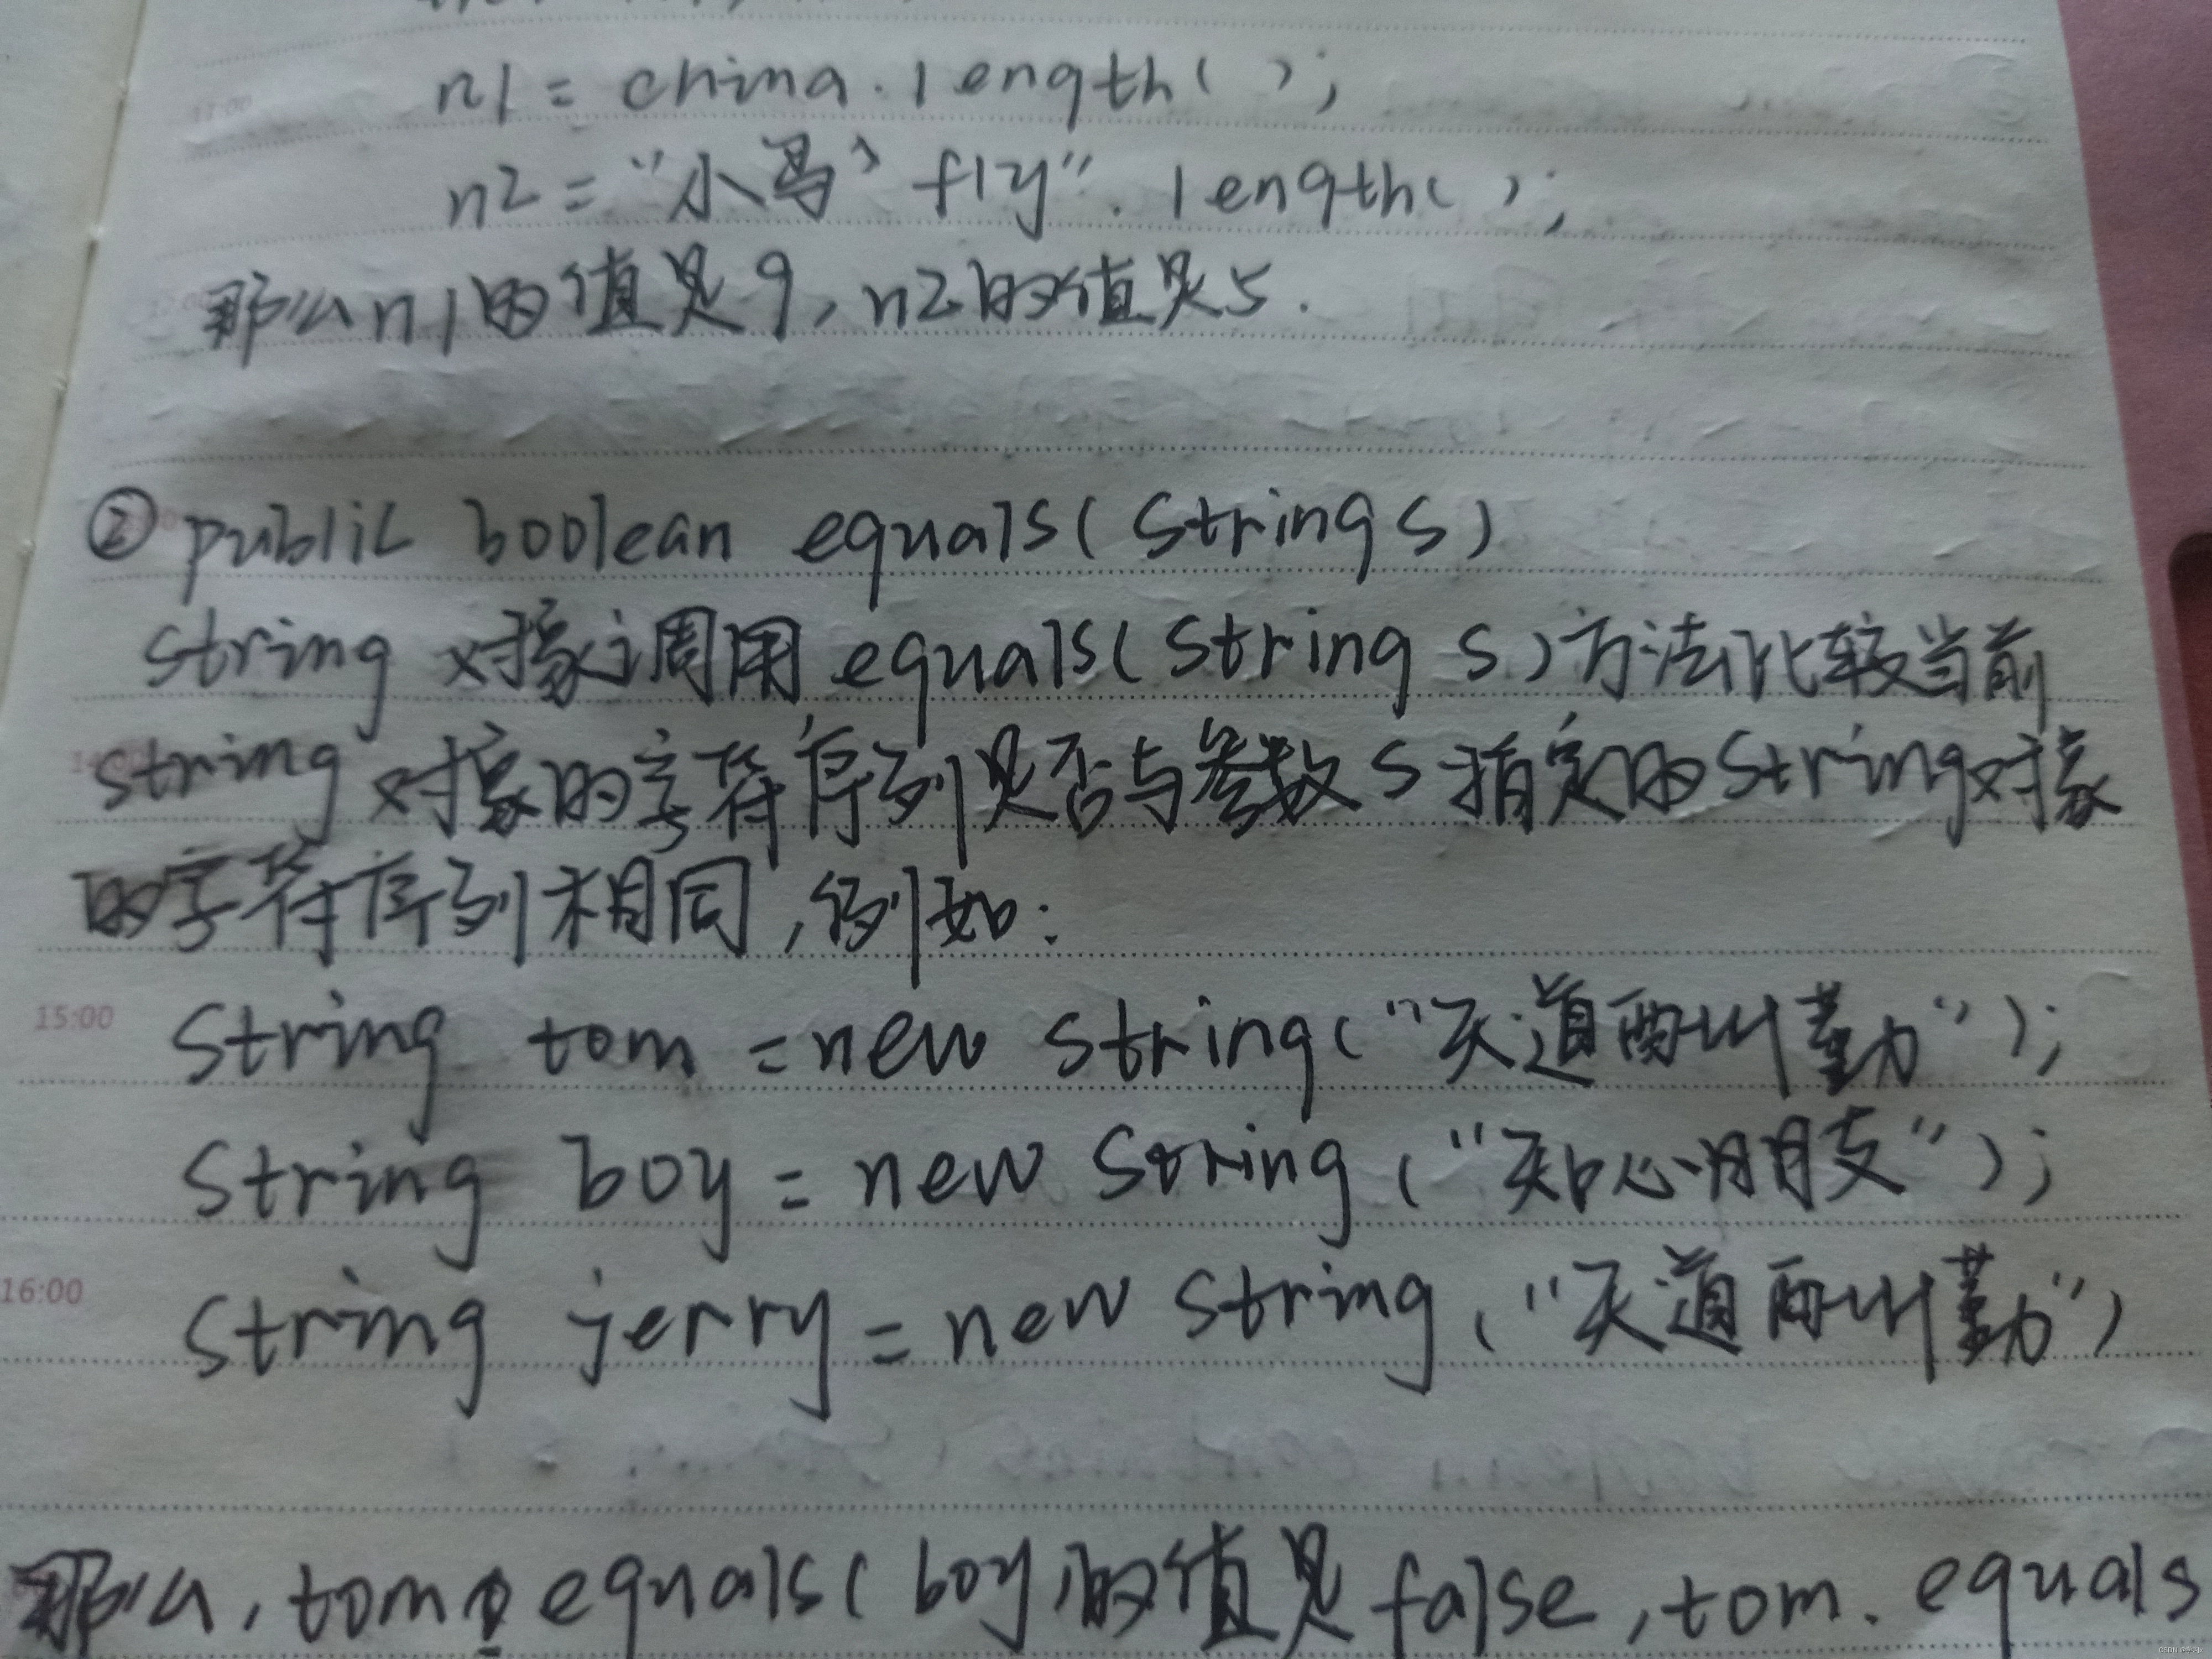 n1 = china.length( );
n2 = "小鸟 fly".length( );
那么n1的值是9, n2的值是5.
② public boolean equals(String s)
String 对象调用 equals(String s)方法比较当前
String 对象的字符序列是否与参数 s 指定的String对象
的字符序列相同, 例如:
15:00
String tom = new String("天道酬勤");
String boy = new String ("知心朋友");
16:00
String jerry = new String ("天道酬勤")
那么, tom. equals( boy)的值是false, tom. equals